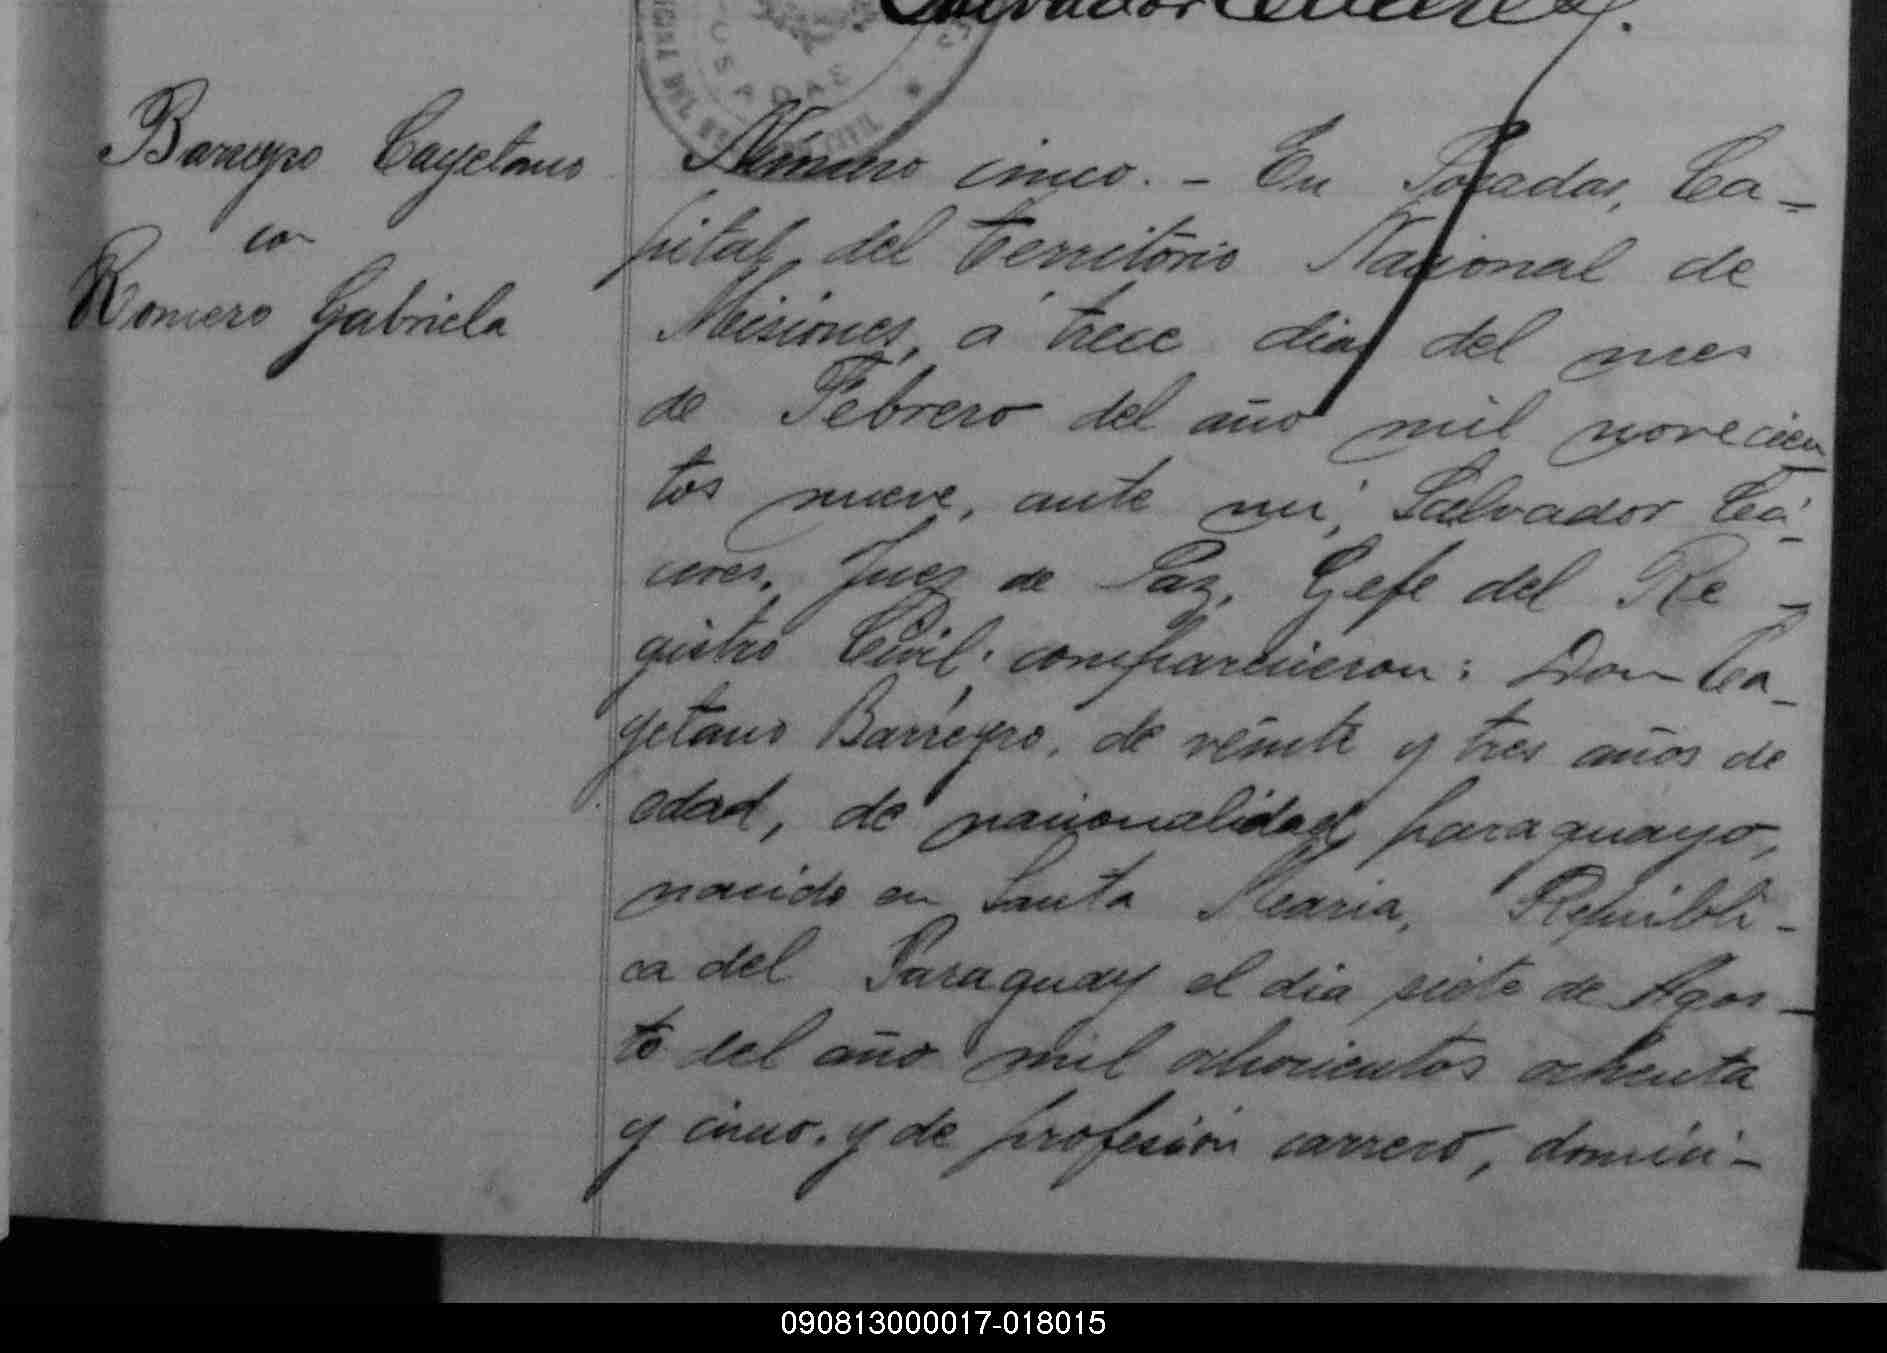 Salvador Cáceres.
POSADAS
Barreyro Cayetano
con
Romero Gabriela
Número cinco. - En Posadas, Ca-
pital del territorio Nacional de
Misiones, á trece dias del mes
de Febrero del año mil novecien
tos nueve, ante mi, Salvador Cá-
ceres, Juez de Paz, Gefe del Re-
gistro Civil; comparecieron: Don Ca-
yetano Barreyro, de veinte y tres años de
edad, de nacionalidad paraguayo,
nacido en Santa Maria, Repúbli-
ca del Paraguay el dia siete de Agos-
to del año mil ochocientos ochenta
y cinco. y de profesión carrero, domici-
090813000017-018015